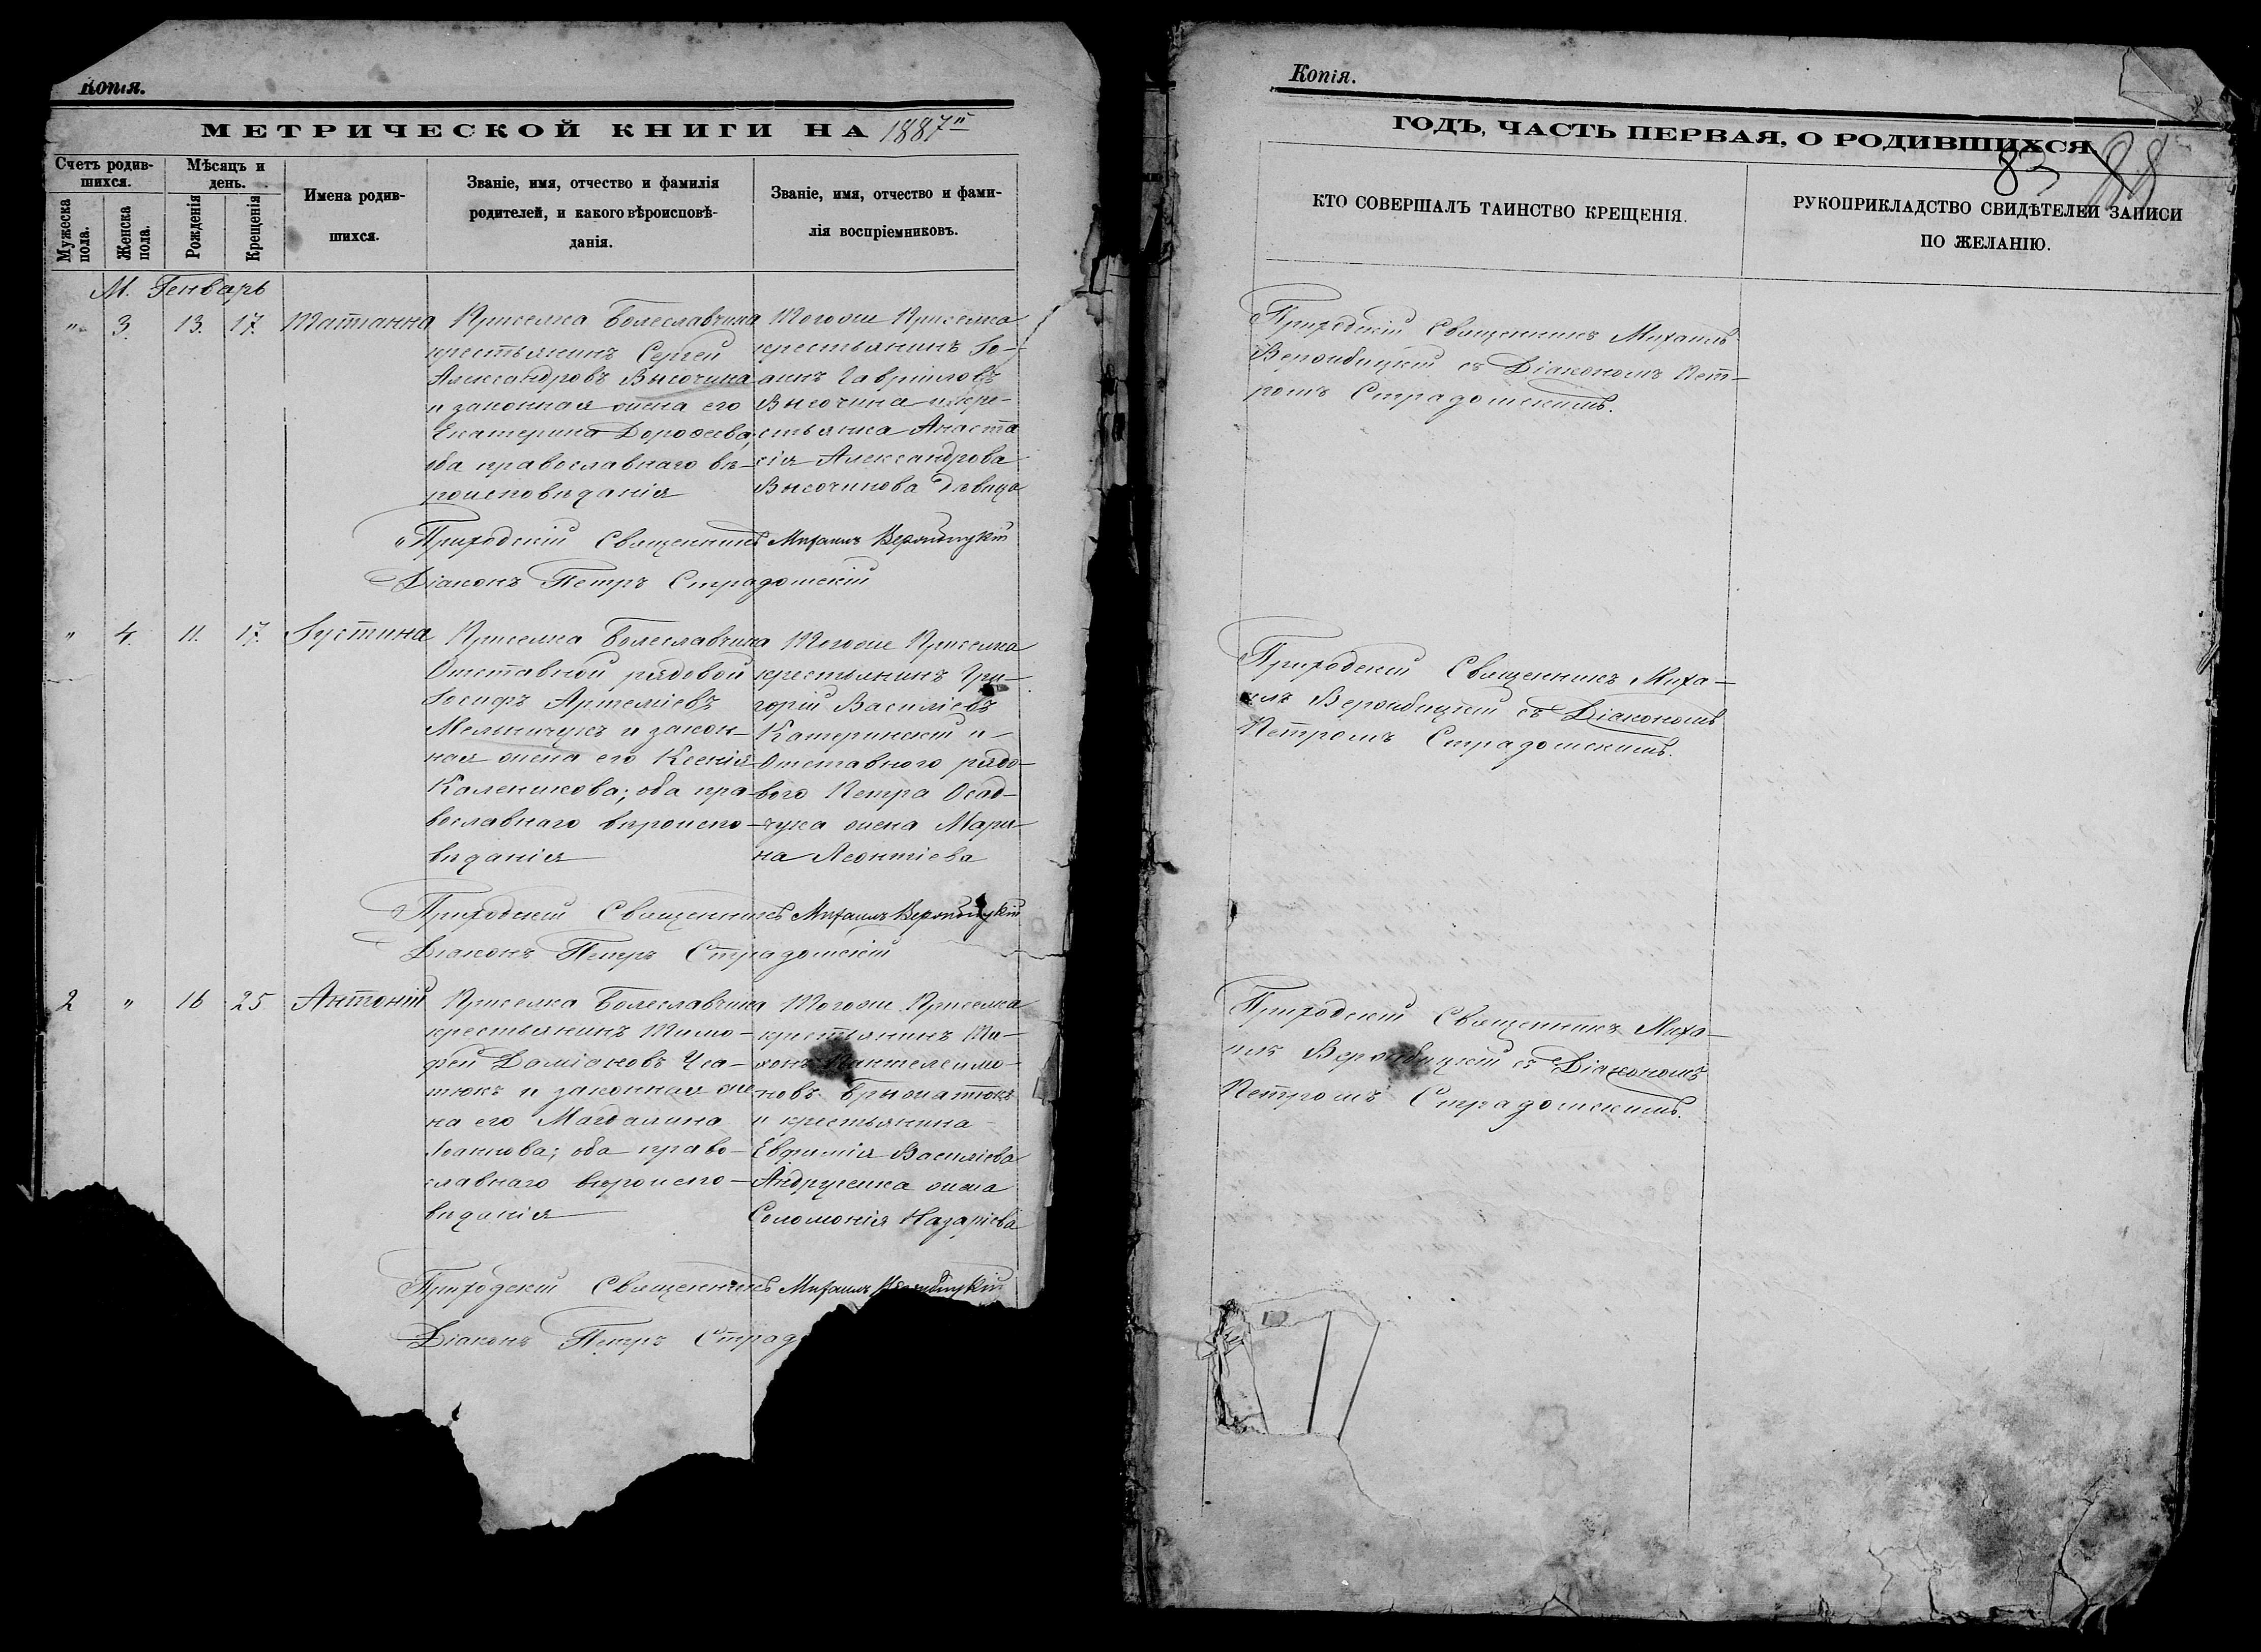 Копія.
МЕТРИЧЕСКОЙ КНИГИ НА 1887й
Счетъ родив-
шихся.
Мѣсяцъ и
день.
Мужеска
пола.
Женска
пола.
Рожденія
Крещенія
Имена родив-
шихся.
Званіе, имя, отчество и фамилія
родителей, и какого вѣроисповѣ-
данія.
Званіе, имя, отчество и фами-
лія воспріемниковъ.
М. Генварь
" 3. 13. 17. Татіанна
Приселка Болеславчика
крестьянинъ Сергей
Александровъ Высочина
и законная жена его
Екатерина Дорофеева,
оба православнаго вѣ-
роисповѣданія
Тогоже Приселка
крестьянинъ Іо-
аннъ Гавріиловъ
Высочина и кре-
стьянка Анаста
сія Александрова
Высочинова дѣвица
Приходскій Священникъ Михаилъ Вербицкій
Діаконъ Петръ Страдомскій
" 4. 11. 17. Іустина
Приселка Болеславчика
Отставной рядовой
Іосифъ Артеміевъ
Мельничукъ и закон-
ная жена его Ксенія
Каленикова; оба пра-
вославнаго вѣроиспо-
вѣданія
Тогоже Приселка
крестьянинъ Гри-
горій Василіевъ
Катеринскій и
Отставного рядо-
вого Петра Осад-
чука жена Мари-
на Леонтіева
Приходскій Священникъ Михаилъ Вербицкій
Діаконъ Петръ Страдомскій
2 " 16 25. Антоній
Приселка Болеславчика
крестьянинъ Тимо-
фей Даміановъ Уса-
тюкъ и законная же-
на его Магдалина
Іоаннова; оба право-
славнаго вѣроиспо-
вѣданія
Тогоже Приселка
крестьянинъ
Пантелеимо-
новъ
и крестьянина
Евфимія Василіева
Андрусика жена
Соломонія Назаріева
Приходскій Священникъ Михаилъ Вербицкій
Діаконъ Петръ Страд
Копія.
ГОДЪ, ЧАСТЬ ПЕРВАЯ, О РОДИВШИХСЯ
83 88
КТО СОВЕРШАЛЪ ТАИНСТВО КРЕЩЕНІЯ.
РУКОПРИКЛАДСТВО СВИДѢТЕЛЕЙ ЗАПИСИ
ПО ЖЕЛАНІЮ.
Приходскій Священникъ Михаилъ
Вербицкій съ Діакономъ Пет-
ромъ Страдомскимъ.
Приходскій Священникъ Миха-
илъ Вербицкій съ Діакономъ
Петромъ Страдомскимъ.
Приходскій Священникъ Миха-
илъ Вербицкій съ Діакономъ
Петромъ Страдомскимъ.